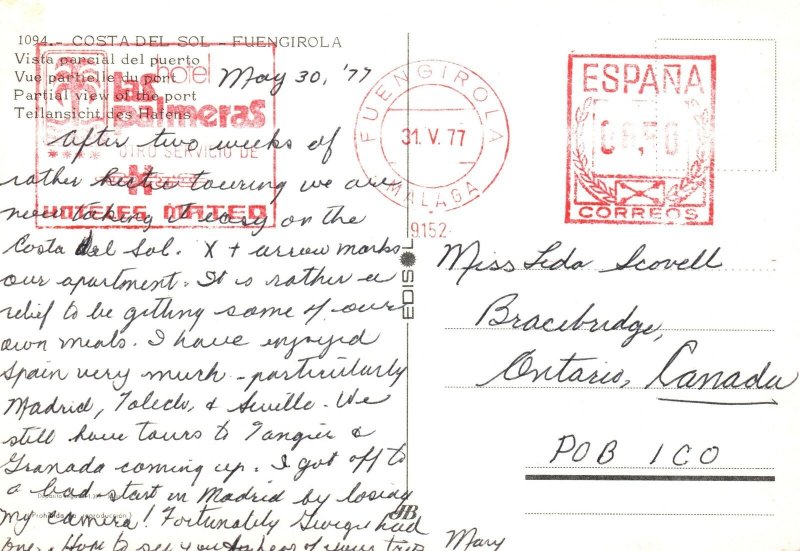 1094.- COSTA DEL SOL - FUENGIROLA
Vista parcial del puerto
Vue partielle du port
Partial view of the port
Teilansicht des Hafens
hotel
las
palmeras
OTRO SERVICIO DE
HOTELES MATEO
May 30, '77
After two weeks of
rather hectic touring we are
now taking it easy on the
Costa del Sol. X + arrow marks
our apartment. It is rather a
relief to be getting some of our
own meals. I have enjoyed
Spain very much - particularly
Madrid, Toledo, & Seville. We
still have tours to Tangier &
Granada coming up. I got off to
a bad start in Madrid by losing
my camera! Fortunately George had
one. Hope to see you & hear of your trip
Mary
FUENGIROLA
31. V. 77
MALAGA
9152
ESPAÑA
CORREOS
EDISOL
JB
Miss Leda Scovell
Bracebridge,
Ontario, Canada
POB 1CO